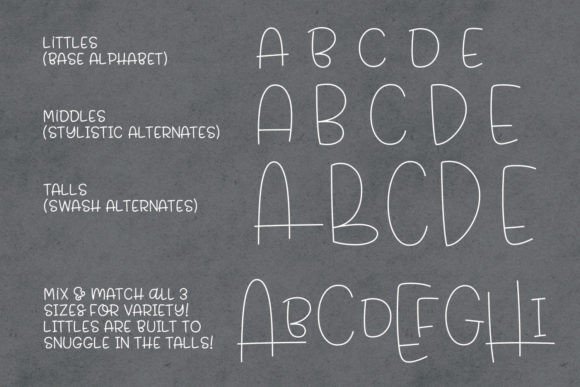 LITTLES
(BASE ALPHABET)
A B C D E
MIDDLES
(STYLISTIC ALTERNATES)
A B C D E
TALLS
(SWASH ALTERNATES)
A B C D E
MIX & MATCH ALL 3
SIZES FOR VARIETY!
LITTLES ARE BUILT TO
SNUGGLE IN THE TALLS!
ABCDEFGHI